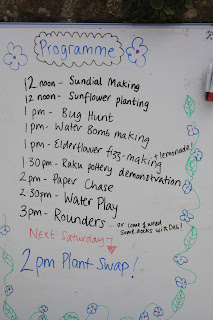 Programme
12 noon - Sundial Making
12 noon - Sunflower planting
1 pm - Bug Hunt
1 pm - Water Bomb making
1 pm - Elderflower fizz-making + lemonade!
1:30pm - Raku pottery demonstration
2pm - Paper Chase
2:30pm - Water Play
3pm - Rounders
or come & weed
some docks with Deb!
Next Saturday
2pm Plant Swap!